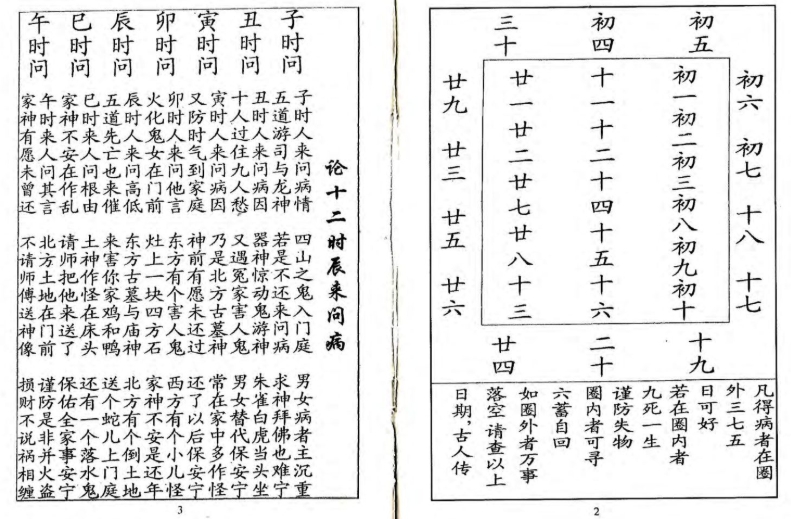 初五
初四
三十
初六 初七 十八 十七
初一初二初三初八初九初十
十一十二十四十五十六
廿一廿二廿七廿八十三
廿九 廿三 廿五 廿六
十九
二十
廿四
凡得病者在圈
外三七五
日可好
若在圈内者
九死一生
谨防失物
圈内者可寻
六蓄自回
如圈外者万事
落空请查以上
日期,古人传
2
论十二时辰来问病
子时问
子时人来问病情 四山之鬼入门庭 男女病者主沉重
五道游司与龙神 若是不还来问病 求神拜佛也难宁
丑时问
丑时人来问病因 器神惊动鬼游神 朱雀白虎当头坐
十人过住九人愁 又遇冤家害人鬼 男女替代保安宁
寅时问
寅时人来问病因 乃是北方古墓神 常在家中多作怪
又防时气到家庭 神前有愿未还过 还了以后保安宁
卯时问
卯时人来问他言 东方有个害人鬼 西方有个小儿怪
火化鬼女在门前 灶上一块四方石 家神不安是还年
辰时问
辰时人来问高低 东方古墓与庙神 北方有个倒土地
五道先亡也来催 来害你家鸡和鸭 送个蛇儿上门庭
巳时问
巳时来人问根由 土神作怪在床头 还有一个落水鬼
家神不安在作乱 请师把他来送了 保佑全家事安宁
午时问
午时来人问其言 北方土地在门前 谨防是非并火盗
家神有愿未曾还 不请师傅送神像 损财不说祸相缠
3